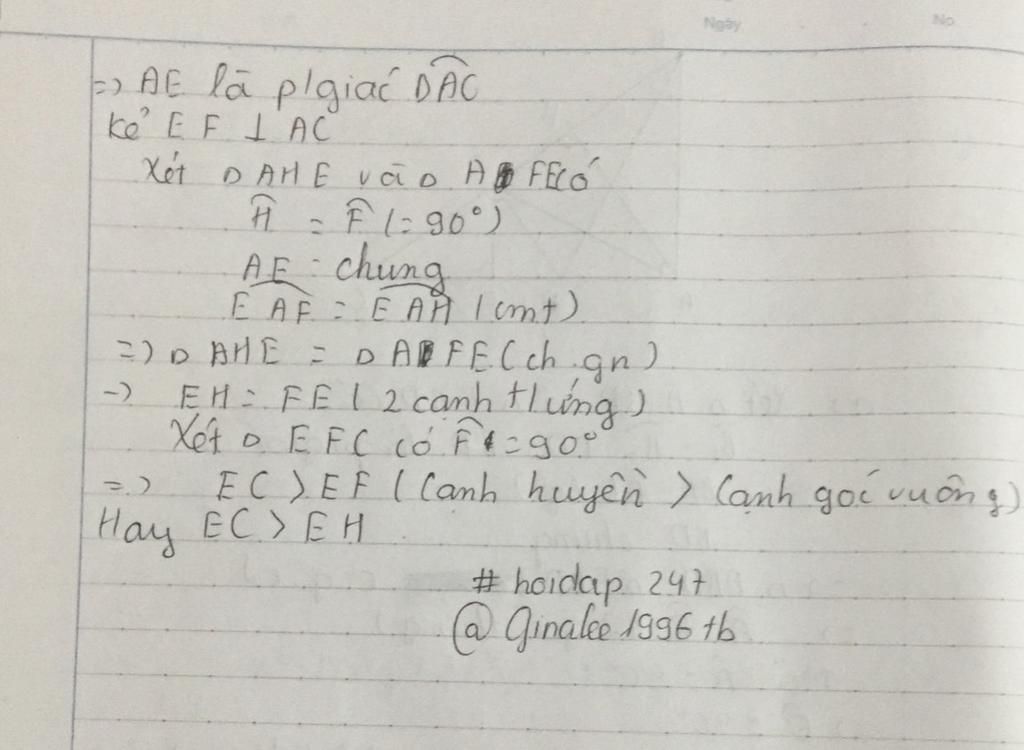 Ngày No
=> AE là p/giác D̂AC
Kẻ EF ⊥ AC
Xét Δ AHE và Δ AFE có
Ĥ = F̂ (= 90°)
AE : chung
ÊAF = ÊAH (cmt)
=> Δ AHE = Δ AFE (ch.gn)
-> EH = FE (2 cạnh t/ứng)
Xét Δ EFC có F̂ = 90°
=> EC > EF (cạnh huyền > cạnh góc vuông)
Hay EC > EH
# hoidap 247
@ Ginalee 1996 tb